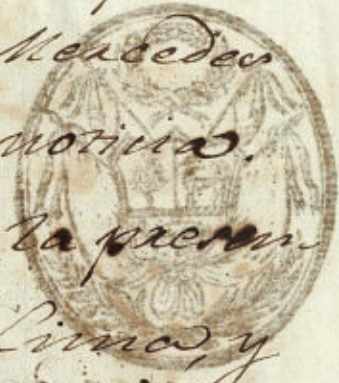 Mercedes
noticia.
la presen
Lima, y